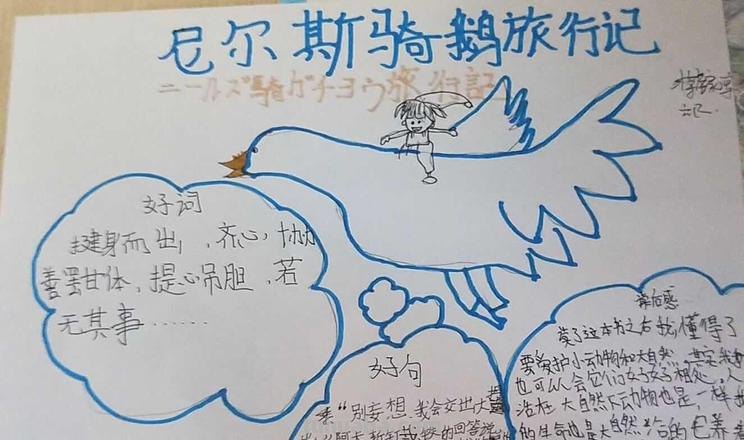 尼尔斯骑鹅旅行记
ニールズ騎ガチョウ旅行記
六乙
好词
挺身而出、齐心协力
善罢甘休、提心吊胆、若
无其事……
好句
"别妄想 我会交出大
的回答说
读后感
读了这本书之后我懂得了
要爱护小动物和大自然
也可以会它们好好相处、人
活在大自然小动物也是、样
的生命也是大自然给的 养